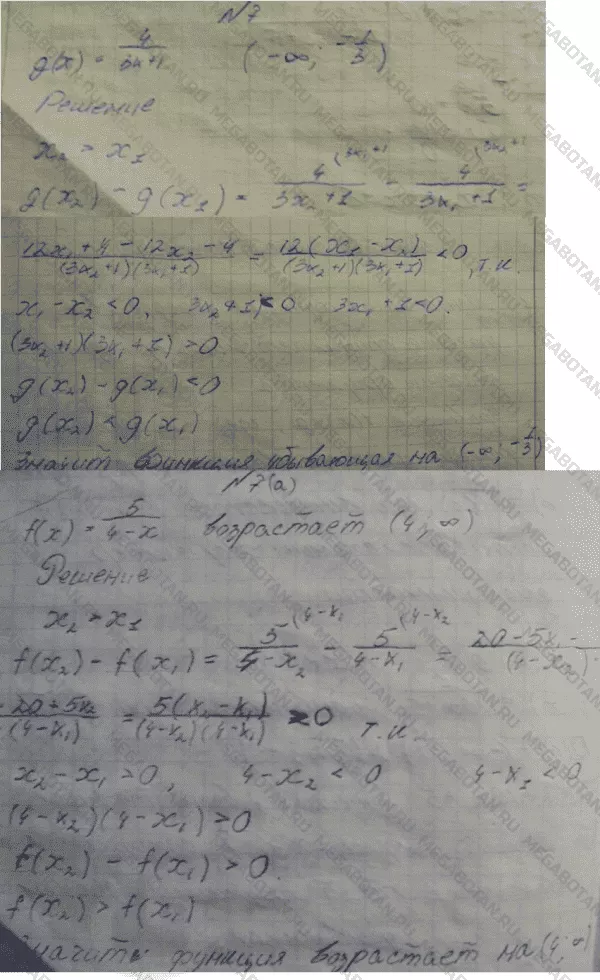 №7
g(x) = 4/(3x+1) (-∞; -1/3)
Решение
x₂ > x₁
g(x₂) - g(x₁) = 4^(3x₁+1/(3x₂+1) - 4^(3x₂+1/(3x₁+1) =
(12x₁+4-12x₂-4)/((3x₂+1)(3x₁+1)) = 12(x₁-x₂)/((3x₂+1)(3x₁+1)) < 0, т.к.
x₁-x₂ < 0, 3x₂+1 < 0 3x₁+1 < 0.
(3x₂+1)(3x₁+1) > 0
g(x₂) - g(x₁) < 0
g(x₂) < g(x₁)
Значит функция убывающая на (-∞; -1/3)
№7(а)
f(x) = 5/(4-x) возрастает (4; ∞)
Решение
x₂ > x₁
f(x₂) - f(x₁) = 5^(4-x₁/(4-x₂) - 5^(4-x₂/(4-x₁) = 20-5x₁-
-20+5x₂/(4-x₁) = 5(x₂-x₁)/((4-x₂)(4-x₁)) > 0 т.к.
x₂-x₁ > 0, 4-x₂ < 0 4-x₁ < 0
(4-x₂)(4-x₁) > 0
f(x₂) - f(x₁) > 0.
f(x₂) > f(x₁)
Значит функция возрастает на (4; ∞)
MEGABOTAN.RU